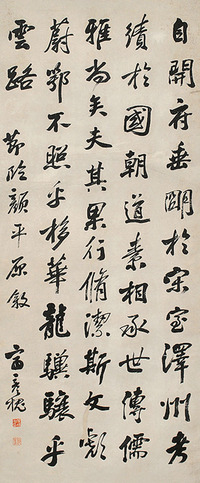 自開府垂明於宋室澤州考
績於國朝道素相承世傳儒
雅尚矣夫其果行脩潔斯文彪
蔚鄂不照乎栘華龍驥驤乎
雲路
節臨顏平原敘